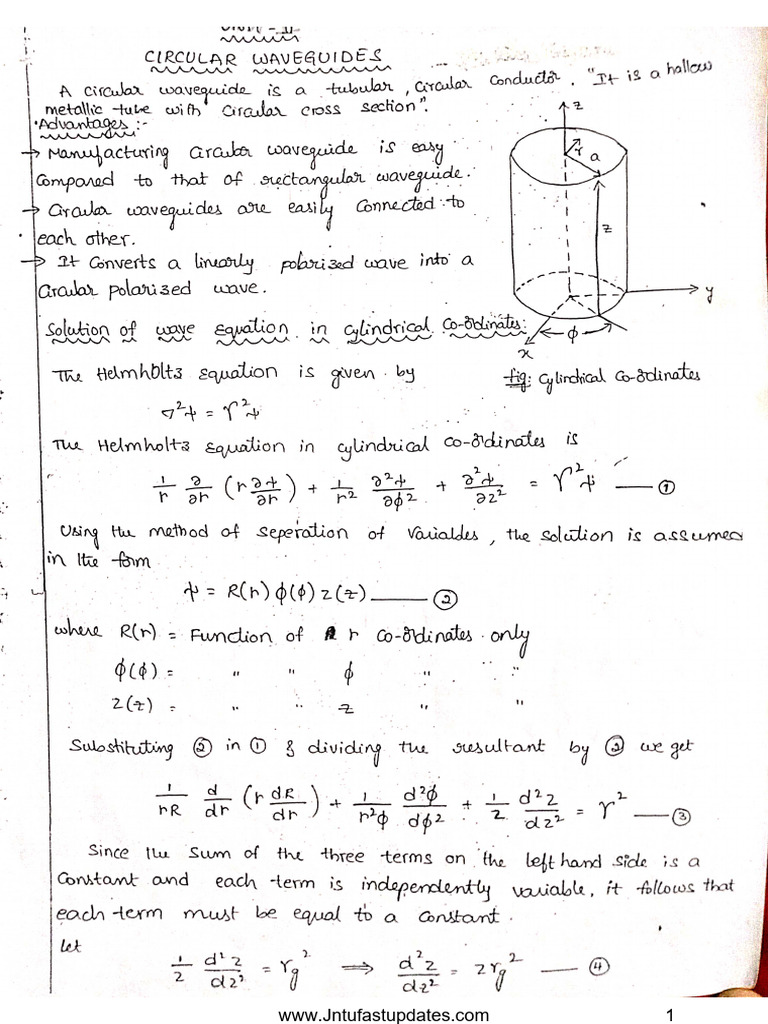 UNIT - II
CIRCULAR WAVEGUIDES
A circular waveguide is a tubular, circular conductor. "It is a hallow
metallic tube with circular cross section".
• Advantages :-
→ Manufacturing circular waveguide is easy
compared to that of rectangular waveguide.
→ Circular waveguides are easily connected to
each other.
→ It converts a linearly polarized wave into a
circular polarized wave.
z
r
a
z
y
ϕ
x
fig: cylindrical co-ordinates
Solution of wave equation in cylindrical co-ordinates:
The Helmholtz equation is given by
∇²ψ = γ²ψ
The Helmholtz equation in cylindrical co-ordinates is
1/r ∂/∂r (r ∂ψ/∂r) + 1/r² ∂²ψ/∂ϕ² + ∂²ψ/∂z² = γ²ψ —— ①
Using the method of seperation of variables, the solution is assumed
in the form
ψ = R(r) ϕ(ϕ) z(z) —— ②
where R(r) = Function of r co-ordinates only
ϕ(ϕ) = " " ϕ " "
Z(z) = " " z " "
Substituting ② in ① & dividing the resultant by ② we get
1/rR d/dr (r dR/dr) + 1/r²ϕ d²ϕ/dϕ² + 1/z d²z/dz² = γ² —— ③
Since the sum of the three terms on the left hand side is a
constant and each term is independently variable, it follows that
each term must be equal to a constant.
let
1/z d²z/dz² = γg² ⟹ d²z/dz² = zγg² —— ④
www.Jntufastupdates.com 1